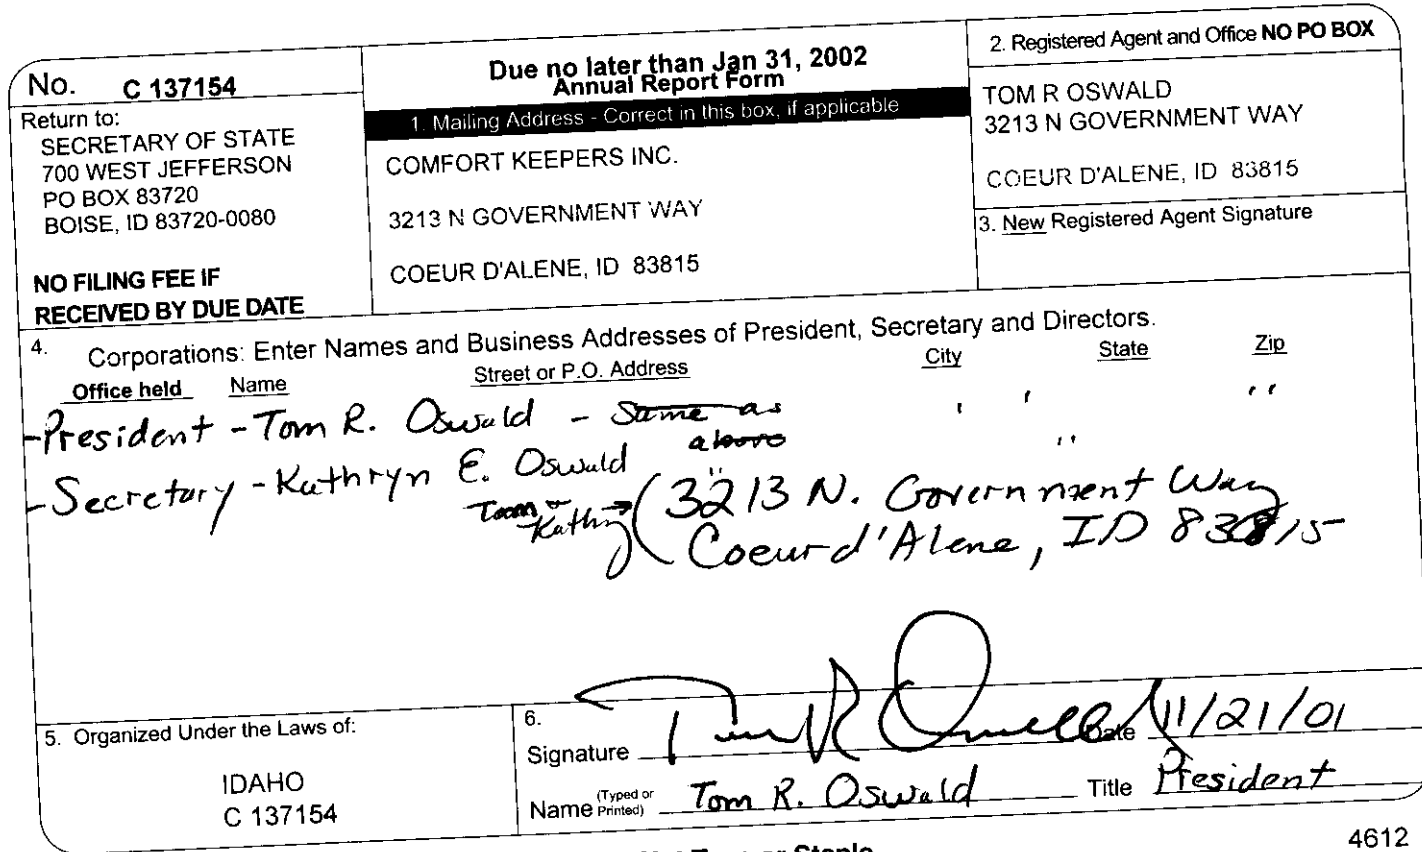 No. C 137154
Return to:
SECRETARY OF STATE
700 WEST JEFFERSON
PO BOX 83720
BOISE, ID 83720-0080
NO FILING FEE IF
RECEIVED BY DUE DATE
Due no later than Jan 31, 2002
Annual Report Form
1. Mailing Address - Correct in this box, if applicable
COMFORT KEEPERS INC.
3213 N GOVERNMENT WAY
COEUR D'ALENE, ID 83815
2. Registered Agent and Office NO PO BOX
TOM R OSWALD
3213 N GOVERNMENT WAY
COEUR D'ALENE, ID 83815
3. New Registered Agent Signature
4. Corporations: Enter Names and Business Addresses of President, Secretary and Directors.
Office held Name Street or P.O. Address City State Zip
-President - Tom R. Oswald - Same as ' ' ''
above
-Secretary - Kathryn E. Oswald '' ''
Tom or
Kathy → ( 3213 N. Government Way
Coeur d'Alene, ID 83815
5. Organized Under the Laws of:
IDAHO
C 137154
6.
Signature Tom R Oswald Date 11/21/01
Name (Typed or Printed) Tom R. Oswald Title President
4612